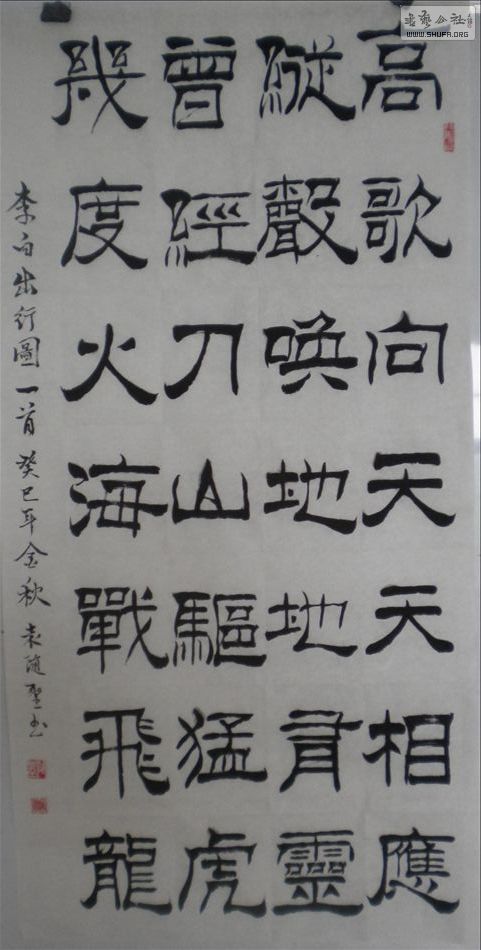 高歌向天天相應
縱聲喚地地有靈
曾經刀山驅猛虎
幾度火海戰飛龍
李白出行圖一首 癸巳年金秋 袁隨聖書
書藝公社
WWW.SHUFA.ORG